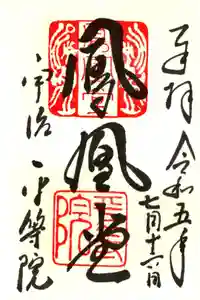 奉拝
令和五年
七月十六日
鳳凰堂
宇治
平等院